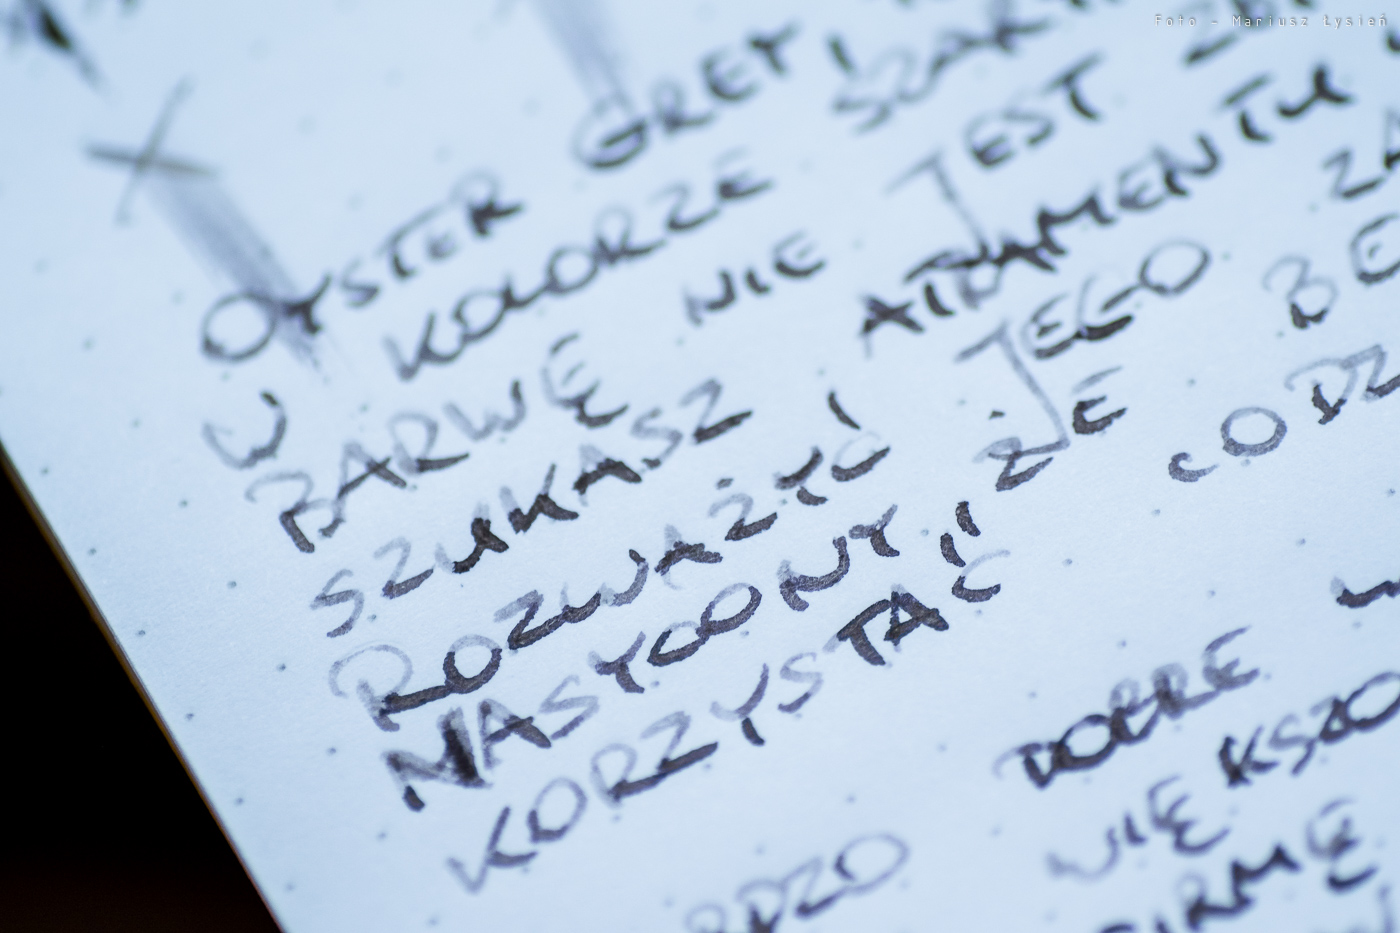 Foto - Mariusz Łysień
OYSTER GREY I
W KOLORZE SZAR
BARWĘ NIE JEST
SZUKASZ ATRAMENTU
ROZWAŻYĆ JEGO ZA
NASYCONY ŻE BE
KORZYSTAĆ" CODZ
DOBRE
WIĘKSZO
FIRMĘ